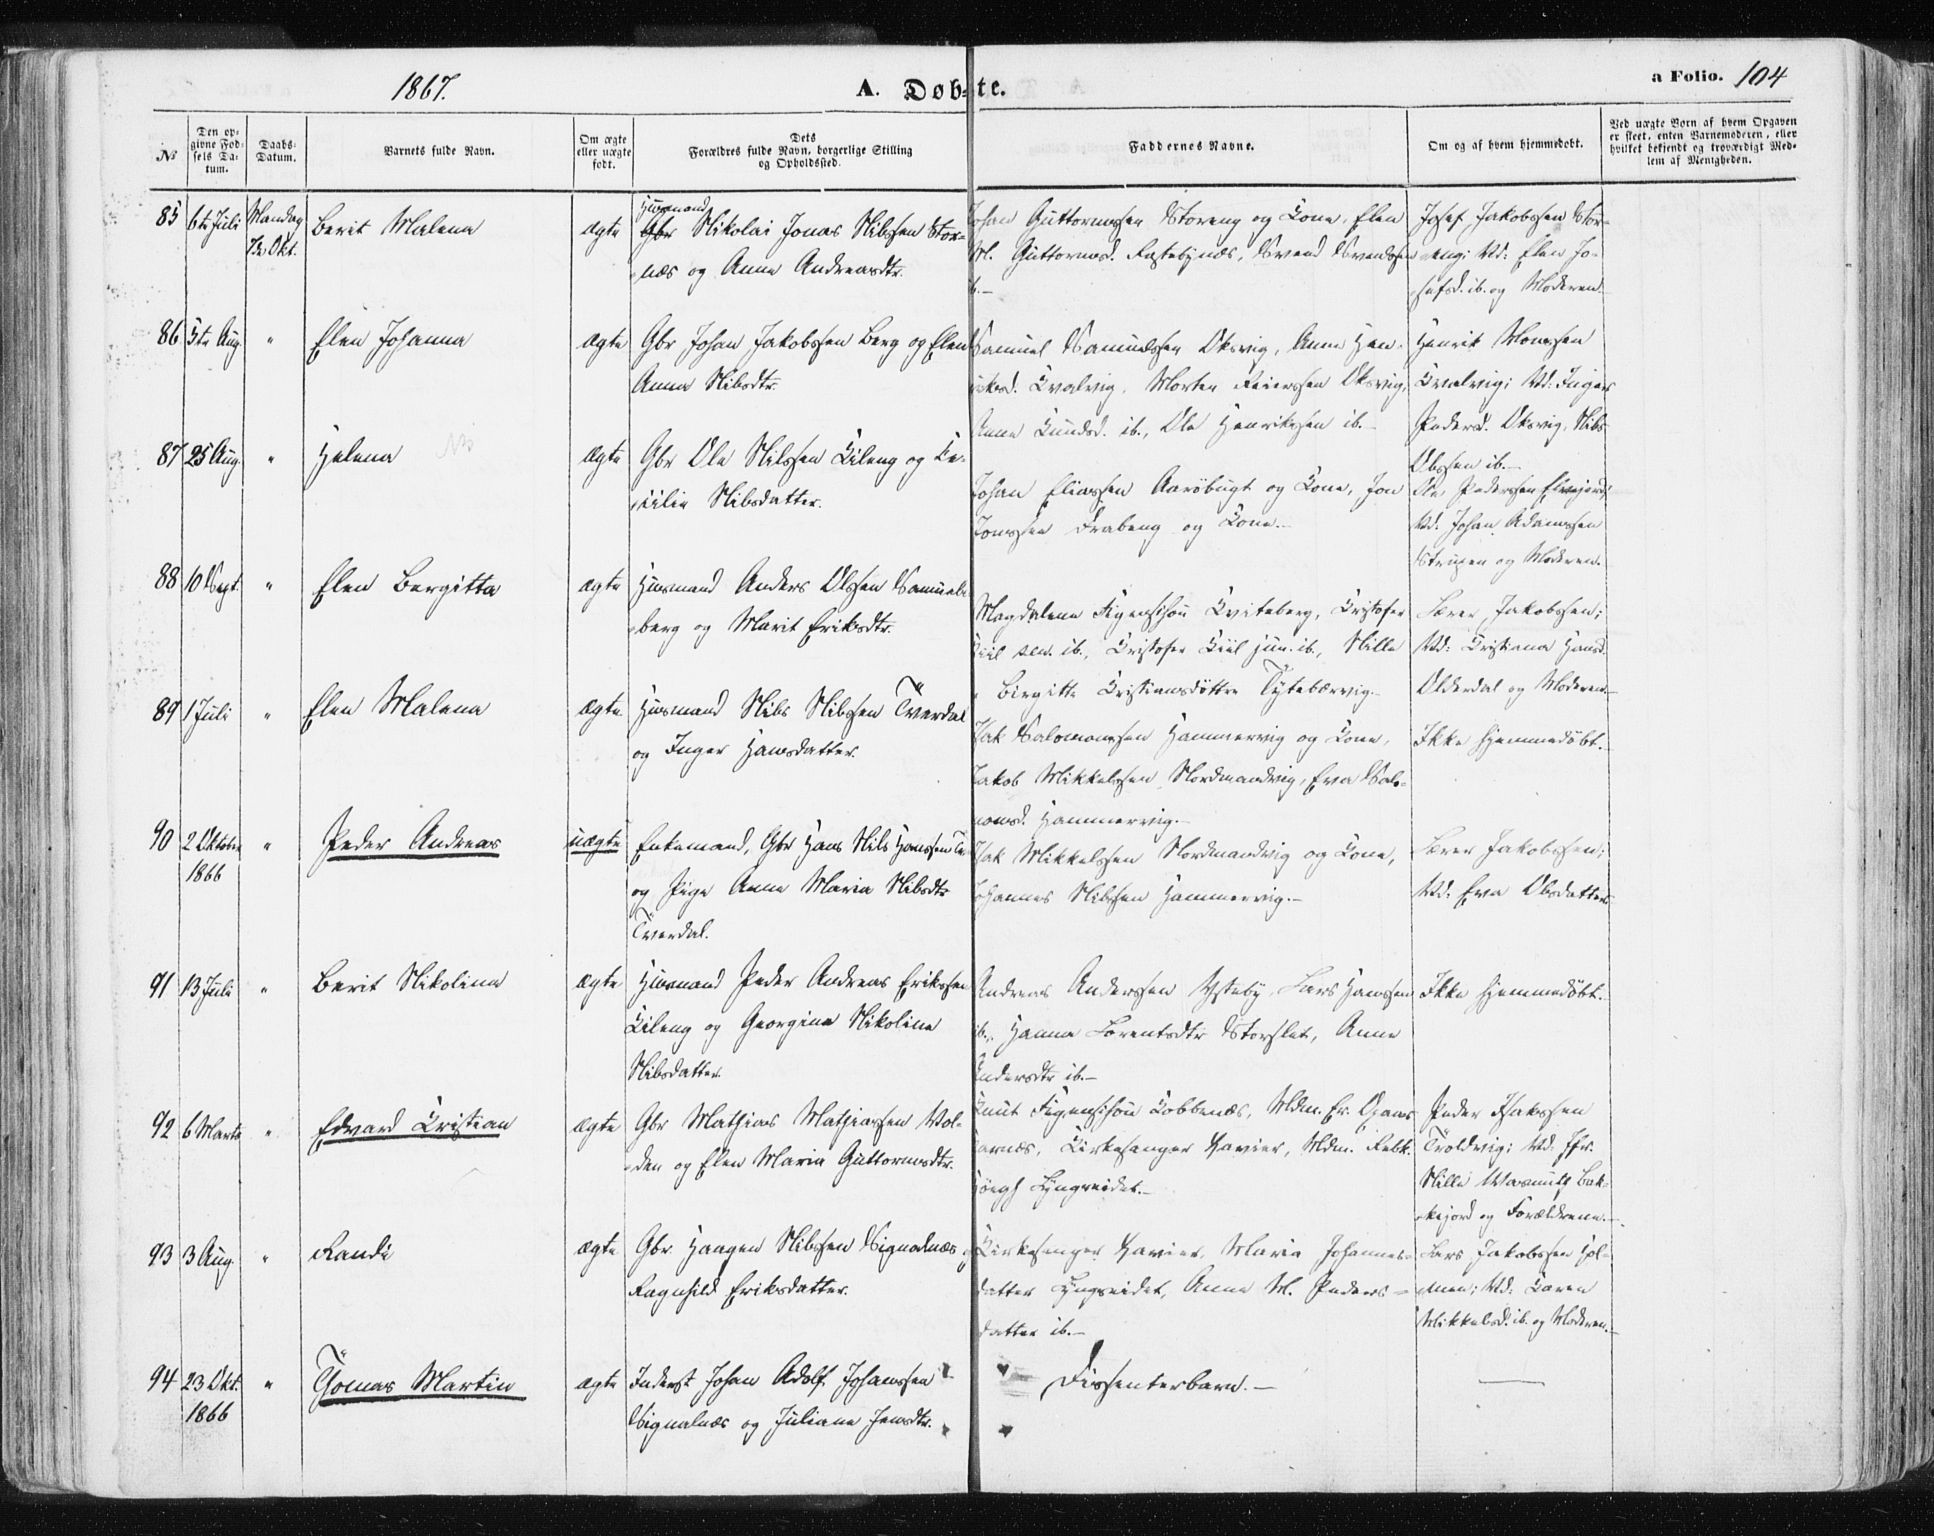 1867.
A. Døbte.
a Folio. 104
№
Den opgivne Fødsels Datum.
Daabs-Datum.
Barnets fulde Navn.
Om ægte eller uægte født.
Dets Forældres fulde Navn, borgerlige Stilling og Opholdssted.
Faddernes Navne.
Om og af hvem hjemmedøbt.
Ved uægte Børn af hvem Opgaven er skeet, enten Barnemoderen, eller hvilket bekjendt og troværdigt Medlem af Menigheden.
85 6te Juli Mandag 7de Okt. Berit Malena ægte Huusmand Gbr Nikolai Jonas Nilssen Stor-
næs og Anne Andreasdtr.
Johan Guttormssen Storeng og Kone, Elen
M. Guttormsd. Rastebynæs, Svend Svendsen
ib.-
Josef Jakobssen Stor-
eng; Vd: Elen Jo-
sefsd. ib. og Moderen.
86 5te Aug. " Elen Johanna ægte Gbr Johan Jakobssen Berg og Elen
Anna Nilsdtr.
Samuel Samuelssen Oksvig, Anne Hen-
riksd. Kvalvig, Morten Reierssen Oksvig,
Anne Knudsd. ib., Ole Henrikssen ib.-
Henrik Monssen
Kvalvig; Vd: Inger
Pedersd. Oksvig, Nils
Olssen ib.-
87 25 Aug. " Helena ægte Gbr Ole Nilssen Kileng og Ce-
cilie Nilsdatter.
Johan Eliassen Aarøbugt og Kone, Jon
Tomssen Frabeng og Kone.-
Ole Pederssen Elvejord;
Vd. Johan Adamssen
Strupen og Moderen.
88 10 Sept. " Elen Bergitta ægte Huusmand Anders Olssen Samuels-
berg og Marit Eriksdtr.
Magdalene Figenschou Kviteberg, Kristofer
Kiil sen. ib., Kristofer Kiil jun. ib., Nille
Birgitte Kristiansdøttre Tytebærvig.-
Lærer Jakobssen;
Vd: Kristiana Hansd.
Olderdal og Moderen.-
89 1 Juli " Elen Malena ægte Huusmand Nils Nilssen Tverdal
og Inger Hansdatter.
Isak Salomonssen Hammervig og Kone,
Jakob Mikkelssen Nordmandvig, Eva Salo-
monsd. Hammervig.-
Ikke hjemmedøbt.-
90 2 Oktober 1866 " Peder Andreas uægte Enkemand, Gbr Hans Nils Hanssen
og Pige Anne Maria Nilsdtr
Tverdal.
Isak Mikkelssen Nordmandvig og Kone,
Johannes Nilssen Hammervig.-
Lærer Jakobssen;
Vd: Eva Olsdatter
91 13 Juli " Berit Nikolina ægte Huusmand Peder Andreas Erikssen
Kileng og Georgine Nikoline
Nilsdatter.
Andreas Anderssen Ysteby, Lars Hanssen
ib., Hanna Lorentsdtr Storslet, Anne
Andersdtr ib.-
Ikke hjemmedøbt.-
92 6 Marts " Edvard Kristian ægte Gbr Mathias Mathiassen Vol-
den og Elen Maria Guttormsdtr.
Knut Figenschou Kobbenæs, Mdm. Er.
Kirkesanger Xavier, Mdm. Rebk.
Høegh Lyngseidet.-
Peder Isakssen
Troldvig; Vd: Jfr.
Nille Wasmuth Bak-
kejord og Forældrene.-
93 3 Aug. " Randi ægte Gbr. Haagen Nilssen Signalnæs og
Ragnhild Eriksdatter.
Kirkesanger Xavier, Maria Johannes-
datter Lyngseidet, Anne M. Peders-
datter ib.-
Lars Jakobssen Hol-
men; Vd: Karen
Mikkelsd. ib. og Moderen.-
94 23 Okt. 1866 " Thomas Martin ægte Inderst Johan Adolf Johanssen
Signalnæs og Juliane Jensdtr.
Dissenterbarn.-